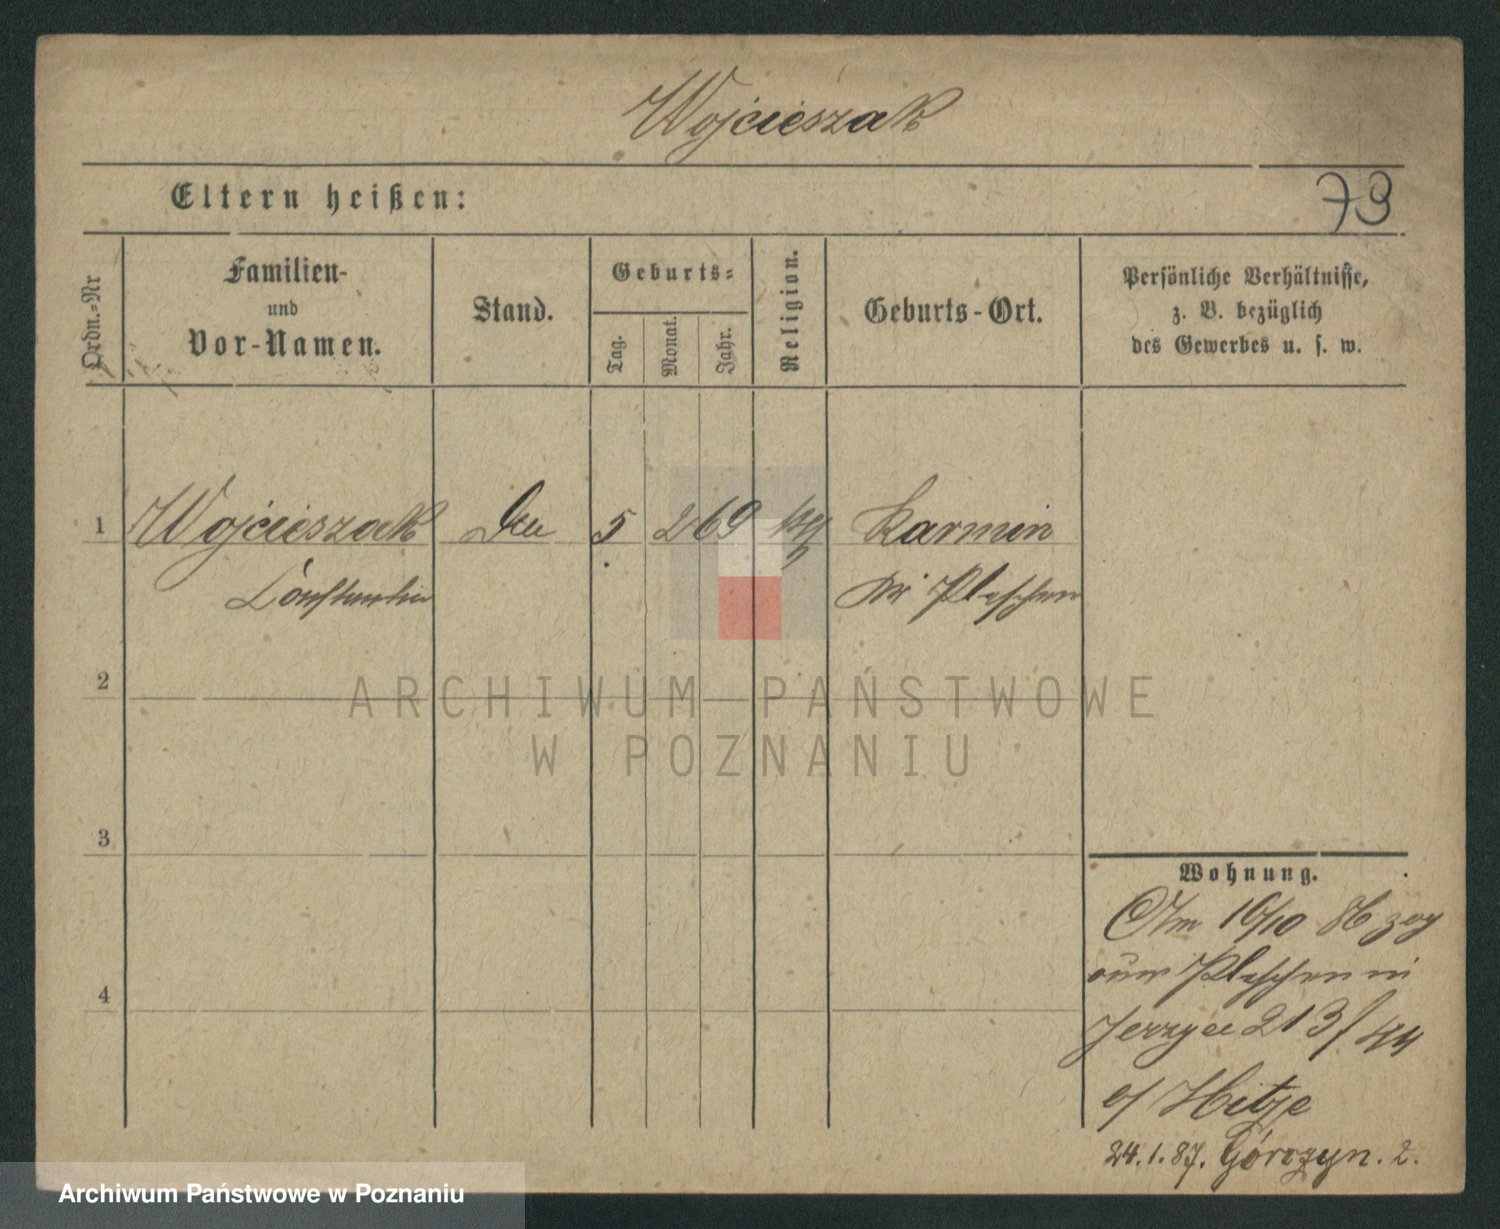 Wojcieszak
Eltern heißen:
73
Ordn.-Nr
Familien-
und
Vor-Namen.
Stand.
Geburts-
Tag.
Monat.
Jahr.
Religion.
Geburts-Ort.
Persönliche Verhältnisse,
z. B. bezüglich
des Gewerbes u. s. w.
1 Wojcieszak 5 2 69 Karmin
Constantin Pleschen
2
ARCHIWUM PAŃSTWOWE
W POZNANIU
3
Wohnung.
Am 16/10 86 zog
aus Pleschen in
4
Jerzyce 213/
Hitze
24.1.87. Górczyn. 2.
Archiwum Państwowe w Poznaniu